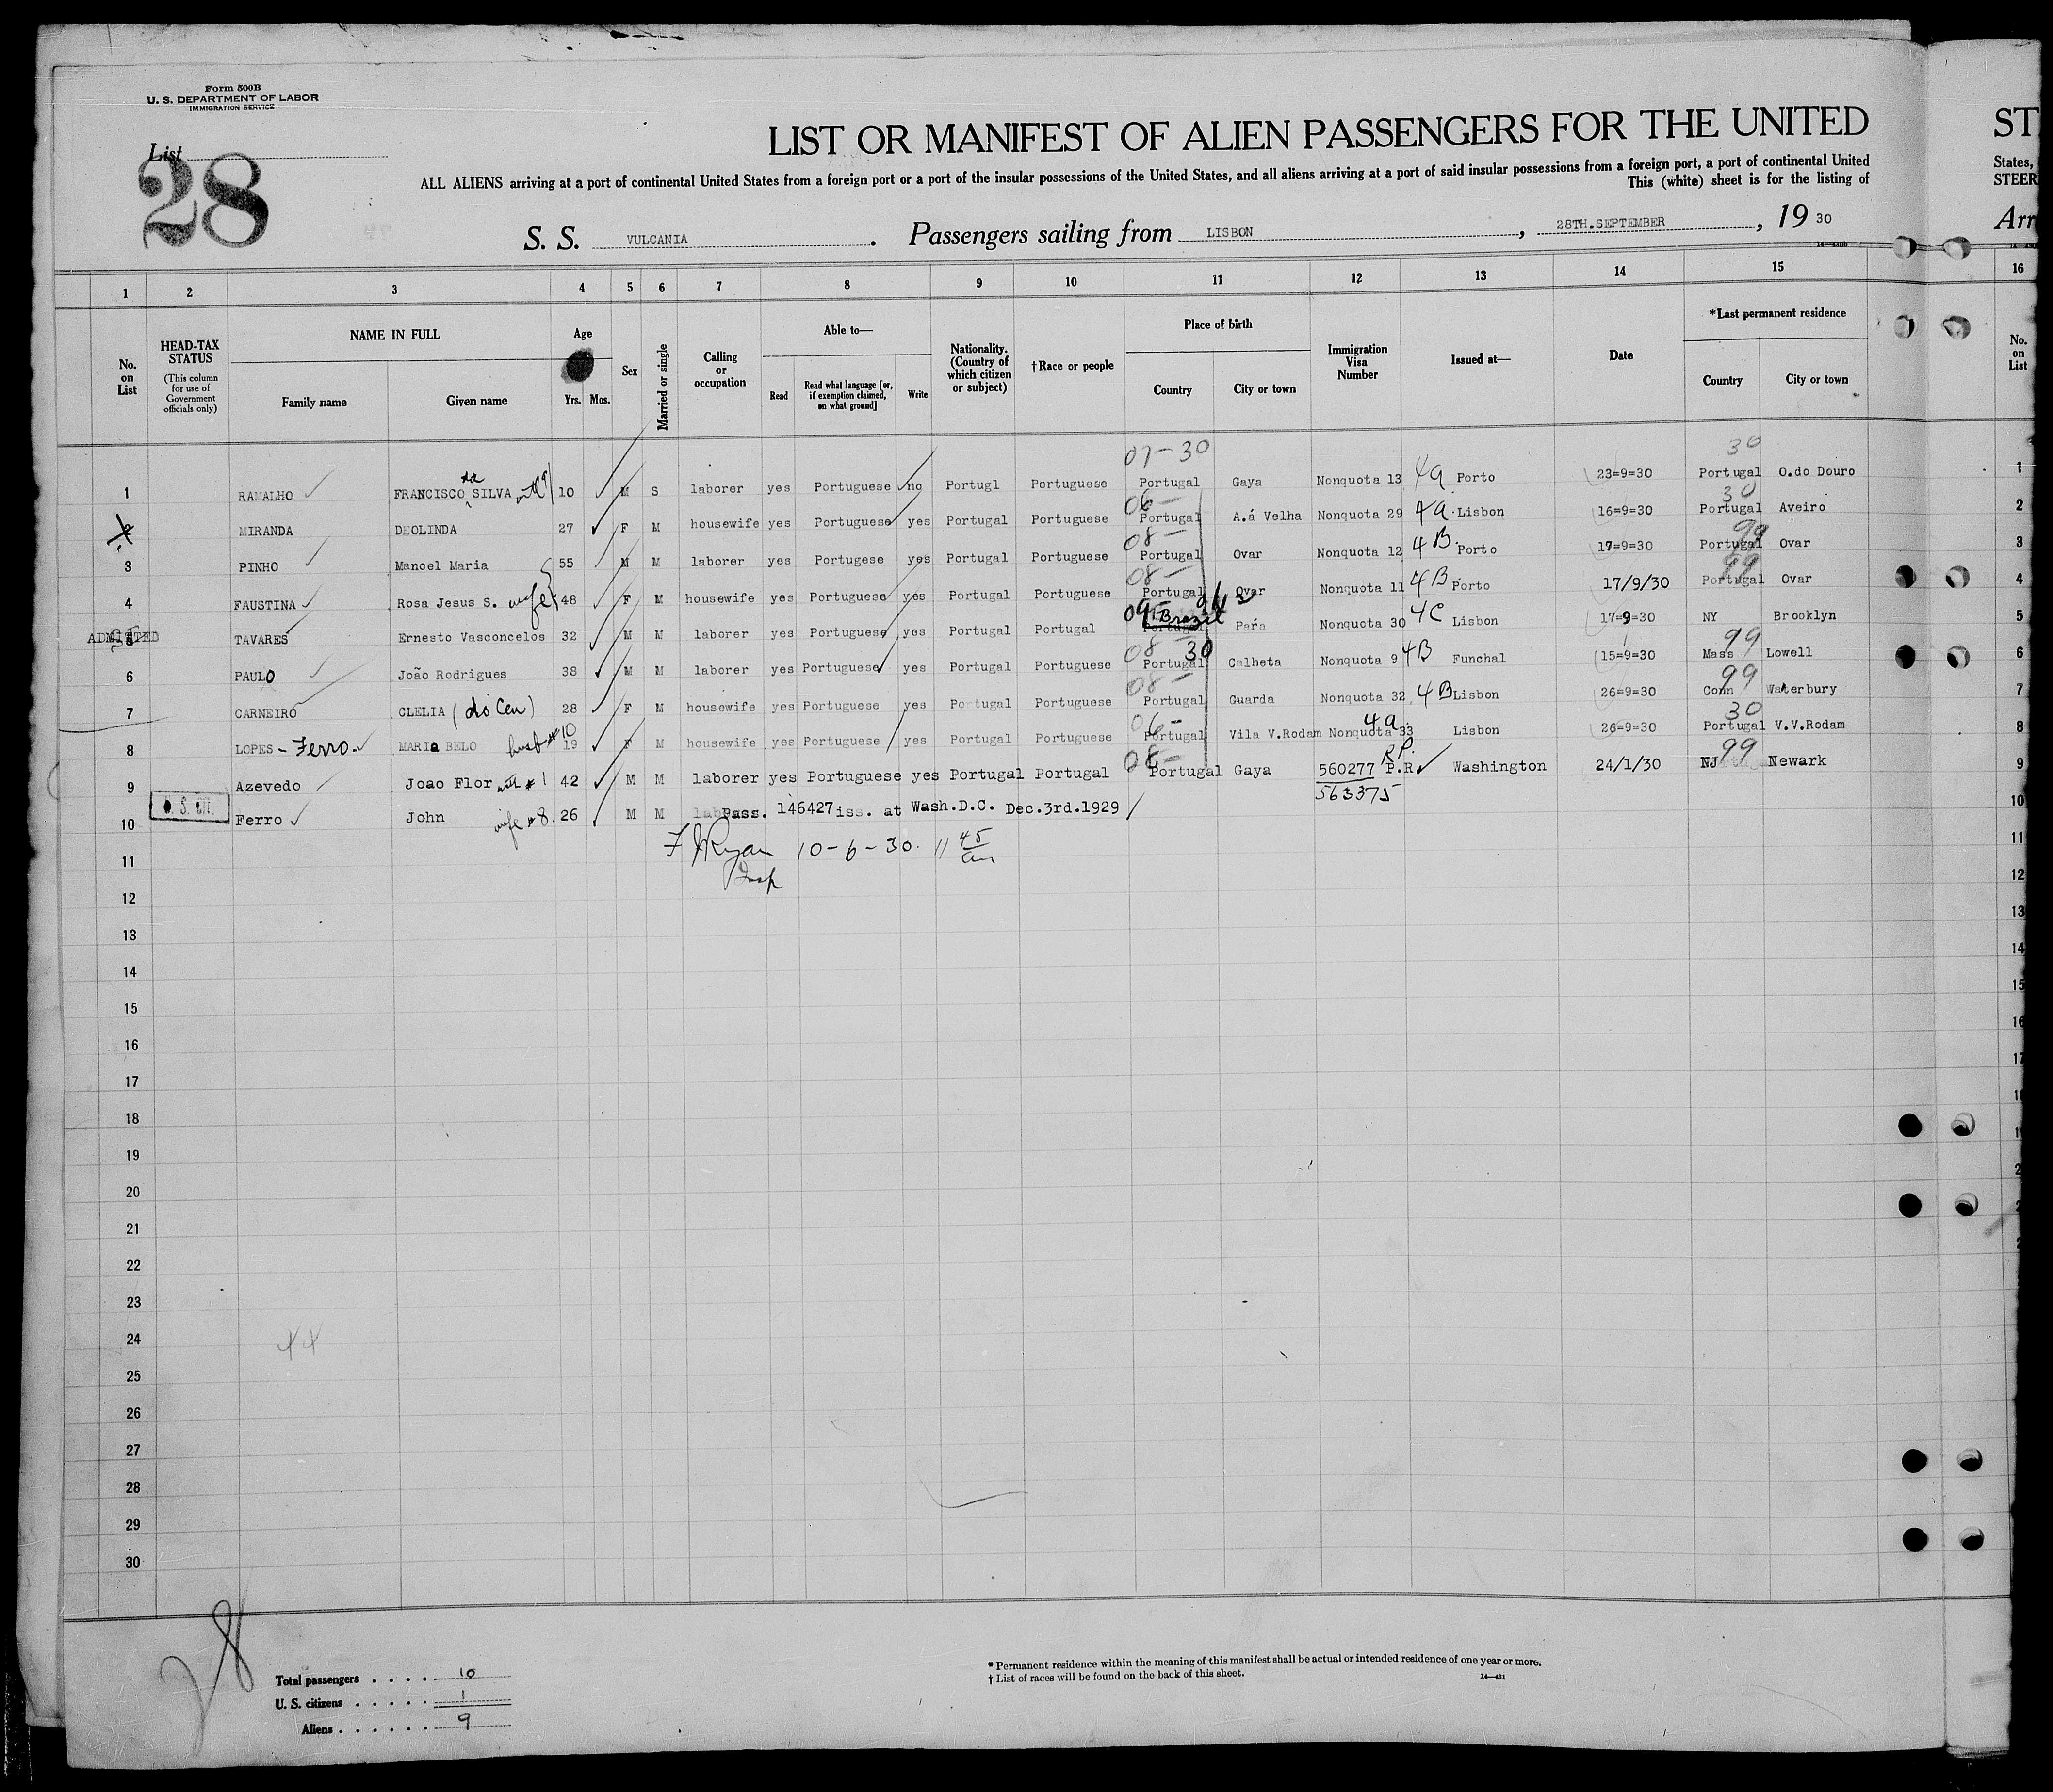 Form 500B
U. S. DEPARTMENT OF LABOR
IMMIGRATION SERVICE
List
28
LIST OR MANIFEST OF ALIEN PASSENGERS FOR THE UNITED
ST
ALL ALIENS arriving at a port of continental United States from a foreign port or a port of the insular possessions of the United States, and all aliens arriving at a port of said insular possessions from a foreign port, a port of continental United
States,
This (white) sheet is for the listing of
STEER
S. S. VULCANIA. Passengers sailing from LISBON, 28TH.SEPTEMBER, 19 30
Arr
1 2 3 4 5 6 7 8 9 10 11 12 13 14 15 16
No. on List
HEAD-TAX STATUS
(This column for use of Government officials only)
NAME IN FULL
Family name Given name
Age
Yrs. Mos.
Sex
Married or single
Calling or occupation
Able to—
Read
Read what language [or, if exemption claimed, on what ground]
Write
Nationality. (Country of which citizen or subject)
†Race or people
Place of birth
Country City or town
Immigration Visa Number
Issued at—
Date
*Last permanent residence
Country City or town
No. on List
07-30 30
1 RAMALHO FRANCISCO da SILVA 10 M S laborer yes Portuguese no Portugl Portuguese Portugal Gaya Nonquota 13 4a Porto 23=9=30 Portugal O.do Douro 1
06- 30
2 MIRANDA DEOLINDA 27 F M housewife yes Portuguese yes Portugal Portuguese Portugal A.á Velha Nonquota 29 4a. Lisbon 16=9=30 Portugal Aveiro 2
08- 99
3 PINHO Manoel Maria 55 M M laborer yes Portugese yes Portugal Portuguese Portugal Ovar Nonquota 12 4B. Porto 17=9=30 Portugal Ovar 3
08- 99
4 FAUSTINA Rosa Jesus S. wife 48 F M housewife yes Portuguese yes Portugal Portuguese Portugal Ovar Nonquota 11 4B Porto 17/9/30 Portugal Ovar 4
ADMITTED 5 TAVARES Ernesto Vasconcelos 32 M M laborer yes Portuguese yes Portugal Portugal Portugal Brazil Pará Nonquota 30 4C Lisbon 17=9=30 NY Brooklyn 5
08 30 99
6 PAULO João Rodrigues 38 M M laborer yes Portuguese yes Portugal Portuguese Portugal Calheta Nonquota 9 4B Funchal 15=9=30 Mass Lowell 6
08- 99
7 CARNEIRO CLELIA (do Ceu) 28 F M housewife yes Portuguese yes Portugal Portuguese Portugal Guarda Nonquota 32 4B Lisbon 26=9=30 Conn Waterbury 7
06- 30
8 LOPES - Ferro. MARIa BELO husb #10 19 F M housewife yes Portuguese yes Portugal Portuguese Portugal Vila V.Rodam Nonquota 33 4a. Lisbon 26=9=30 Portugal V.V.Rodam 8
08- R.P. 99
9 Azevedo Joao Flor with #1 42 M M laborer yes Portuguese yes Portugal Portugal Portugal Gaya 560277 P.R Washington 24/1/30 NJ Newark 9
563375
10 Ferro John wife #8. 26 M M Pass. 146427 iss. at Wash.D.C. Dec.3rd.1929 10
11 F J Ryan 10-6-30. 11 45 am 11
Insp
12 12
13 13
14 14
15 15
16 16
17 17
18 18
19
20
21
22
23
24
44
25
26
27
28
29
30
28
Total passengers . . . . 10
U. S. citizens . . . . . 1
Aliens . . . . . . 9
* Permanent residence within the meaning of this manifest shall be actual or intended residence of one year or more.
† List of races will be found on the back of this sheet.